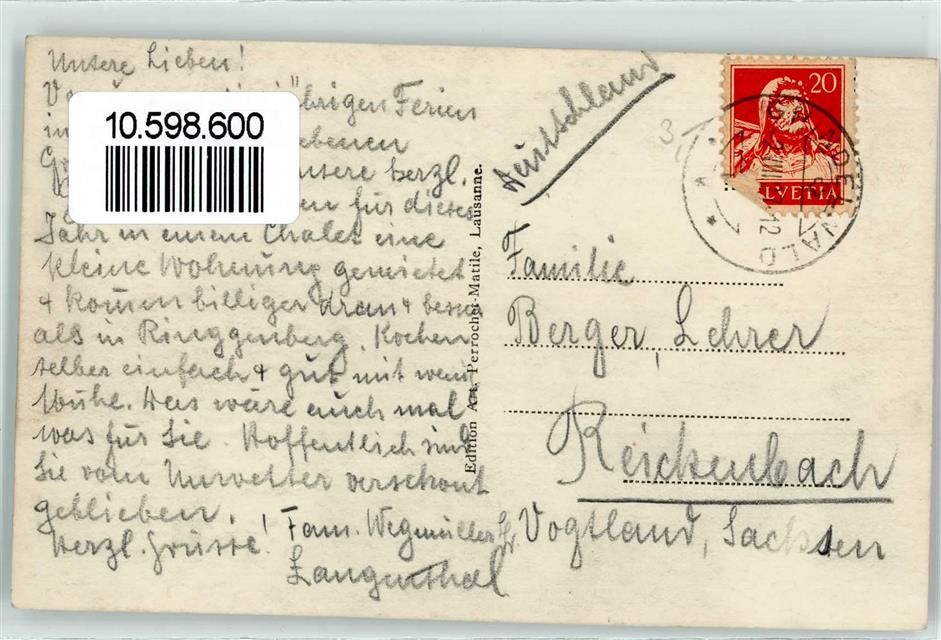 Unsere Lieben!
brigen Ferien
in
ebenen
unsere herzl.
en für dieses
Jahr in einem Chalet eine
kleine Wohnung gemietet
+ kommen billiger dran + besser
als in Ringgenberg. Kochen
selber einfach + gut mit wenig
Mühe. Das wäre auch mal
was für Sie. Hoffentlich sind
Sie vom Unwetter verschont
geblieben.
Herzl. Grüsse! Fam. Wegmüller
Langenthal
10.598.600
Edition Art. Perrochet-Matile, Lausanne.
Deutschland
3
20
HELVETIA
GRINDELWALD
Familie
Berger, Lehrer
Reichenbach
Vogtland, Sachsen